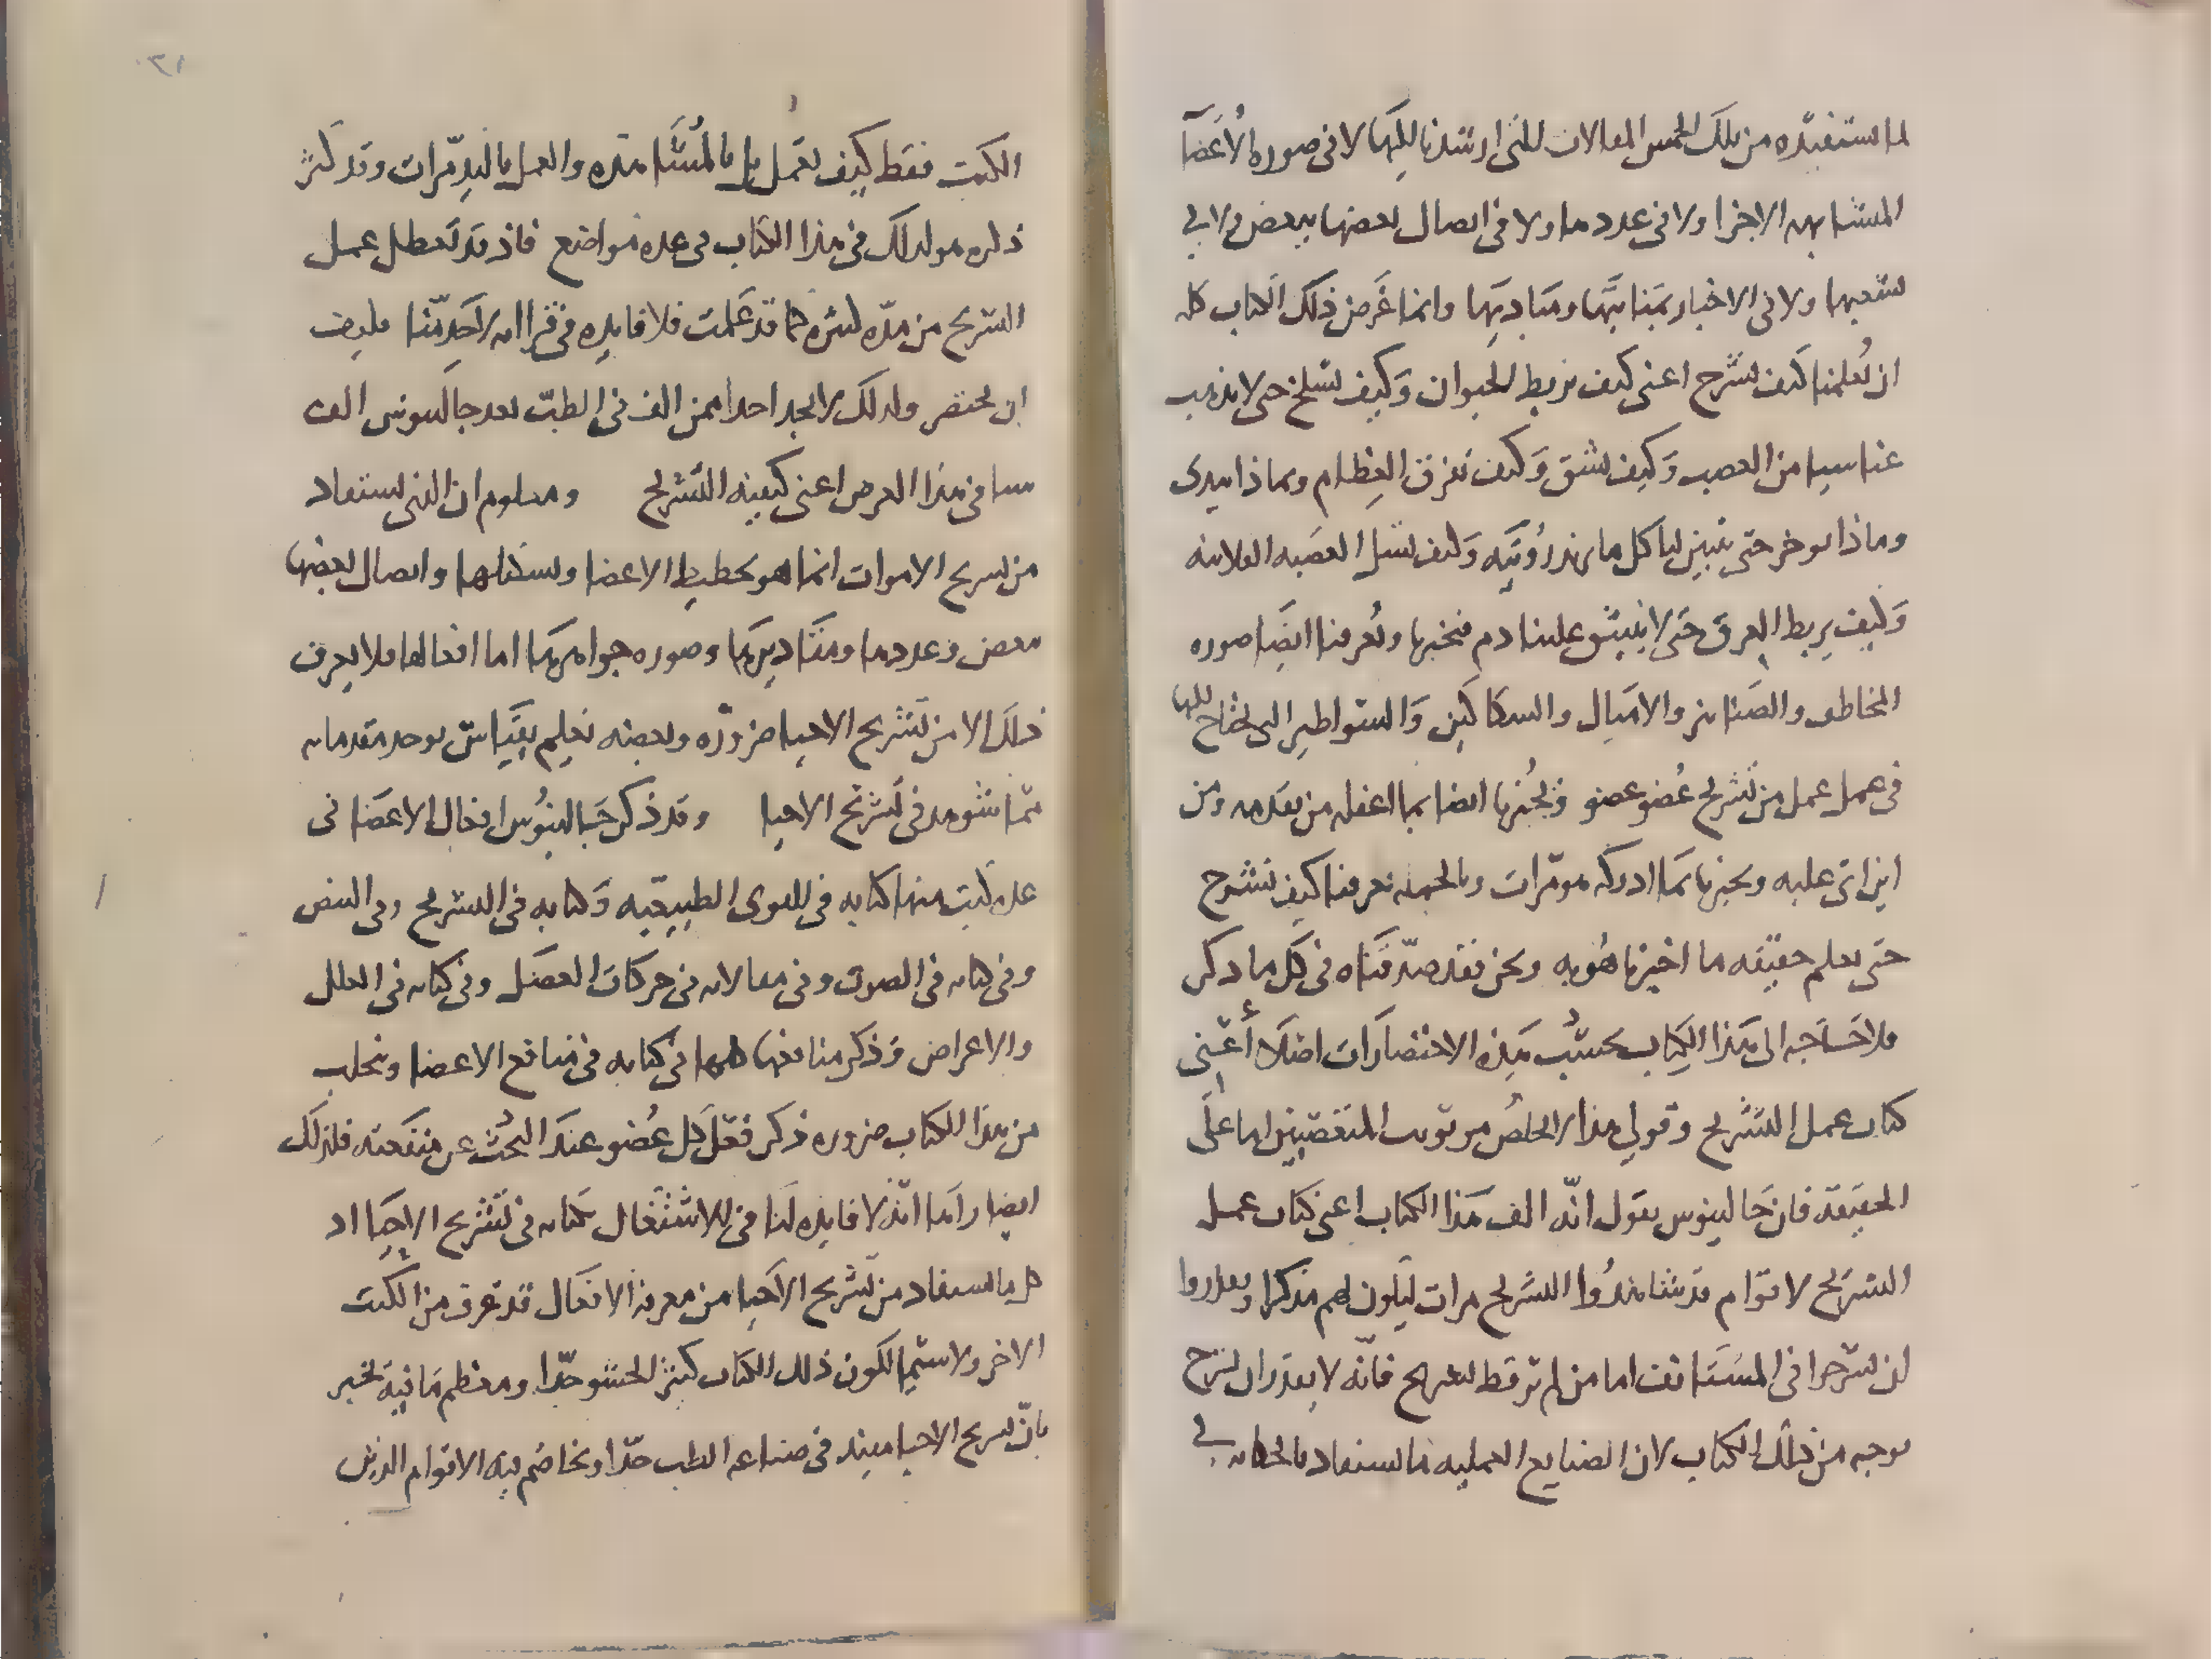 لما استفيده من تلك الخمس المقالات التي ارشدنا اليها لا في صورة الاعضآ
المتشابهه الاجزا ولا في عددها ولا في اتصال بعضها ببعض ولا في
شعبها ولا في الاخبار بمنابتها ومباديها وانما غرض ذلك الكتاب كله
ان يُعلمنا كيف نشرح اعني كيف نربط الحيوان وكيف نسلخ حتى لا يذهب
عنا شيا من العصب وكيف نشق وكيف نفرق العظام وبماذا نبدى
وماذا نوخر حتى يتبين لنا كل ما نريد رؤيته وكيف نشل العصبه الفلانيه
وكيف يربط العرق حتى لا ينبثق علينا دم فيحيرنا ويُعرفنا ايضًا صوره
المخاطف والصنانير والاميال والسكاكين والسواطير التي نحتاج اليها
في عمل عمل من تشريح عُضو عضو ويُخبرنا ايضا بما اغفله من تقدمه ومن
اين اتى عليه ويخبرنا بما ادركه هو مرّات وبالجمله يعرفنا كيف نشرح
حتى نعلم حقيقه ما اخبرنا هُو به ونحن فقد صدّقناه في كل ما ذكر
فلا حَاجه الى هَذا الكِتاب بحسَب هَذه الاختصارَات اصْلا أعني
كتاب عمل التشريح وقولي هذا تخلصُ من توبيب المتعصبين اما على
الحقيقة فان جَالينوس يقول انّه الف هَذا الكتاب اعني كتاب عمل
التشريح لاقوام قد شاهدُوا التشريح مرات ليكون لهم مذكرا ويقدروا
ان يشرحوا في المستَانف اما من لم ير قط تشريح فانّه لا يقدر ان يشرح
بوجه من ذلك الكتاب لان الصنايع العمليه ما تستفاد بالخطابه في
الكتب فقط كيف تعمل بل بالمُشَاهده والعمل باليد مّرات وقد كثر
ذكره هو لذلك في هذا الكتاب في عده مواضع فاذ قد تعطل عمل
التشريح من مدّه كثيره كما قد عَلمت فلا فايده في قراته لاحَد منّا فكيف
ان يختصر ولذلك لا نجد احدا ممن الف في الطبّ بعد جالينوس الف
شيا في هذا الغرض اعني كيفيه التشريح ومعلوم ان الذي يستفاد
من تشريح الاموات انما هو تخطيط الاعضا وتشكلها واتصال بعضها
ببعض وعددها ومقاديرها وصوره جواهرها اما افعالها فلا يعرف
ذلك الا من تشريح الاحيا ضرورَه وبعضه يعلم بقيَاس توخذ مقدماته
ممّا شوهد في تشريح الاحيا وقد ذكر جَالينوُس افعال الاعضا في
عده كتب منها كتابه في القوى الطبيعيّه وكتابه في التشريح وفي النبض
وفي كتابه في الصوت وفي مقالاته في حركات العضل وفي كتابه في العلل
والاعراض وذكر منافعها كلها في كتابه في منافع الاعضا ونجلب
من هذا الكتاب ضروره ذكر فعل كل عُضو عند البحُث عن منفعته فلذلك
ايضا راينا انّه لا فايده لنا في الاشتغال بكتابه في تشريح الاحيَا اذ
كل ما يستفاد من تشريح الاحيا من معرفة الافعال قد تعرف من الكتب
الاخر ولا سيّما لكون ذلك الكتاب كثير الحشو جدّا ومعظم مَا فيه يخبر
بانّ تشريح الاحيا مفيد في صناعه الطب جدّا ويخاصم فيه الاقوام الذين